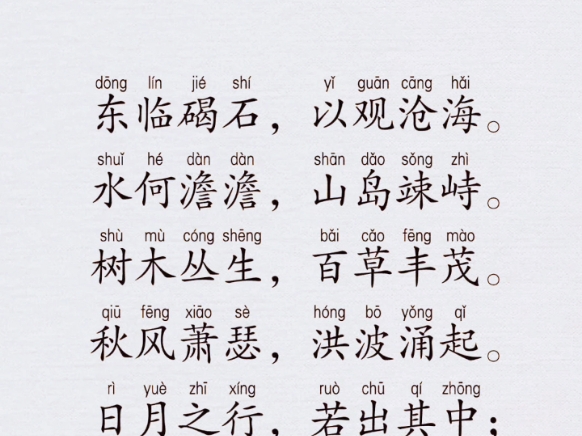 dōng lín jié shí yǐ guān cāng hǎi
东临碣石，以观沧海。
shuǐ hé dàn dàn shān dǎo sǒng zhì
水何澹澹，山岛竦峙。
shù mù cóng shēng bǎi cǎo fēng mào
树木丛生，百草丰茂。
qiū fēng xiāo sè hóng bō yǒng qǐ
秋风萧瑟，洪波涌起。
rì yuè zhī xíng ruò chū qí zhōng
日月之行，若出其中；